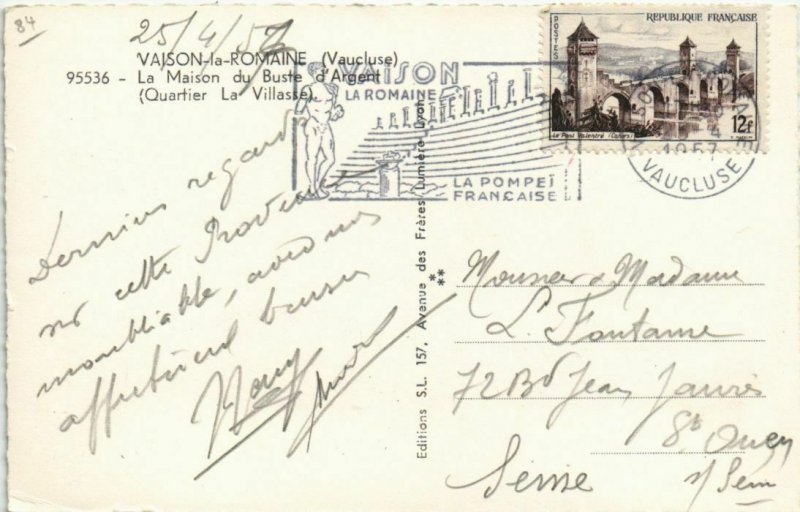 84
25/4/57
VAISON-la-ROMAINE (Vaucluse)
95536 - La Maison du Buste d'Argent
(Quartier La Villasse)
VAISON
LA ROMAINE
LA POMPEÏ
FRANÇAISE
POSTES
REPUBLIQUE FRANÇAISE
Le Pont Valentré (Cahors)
12F
1957
VAUCLUSE
Derniers regards
sur cette Provence
inoubliable, avec nos
affectueux baisers
Editions S.L. 157, Avenue des Frères Lumière Lyon
**
Monsieur & Madame
L. Fontaine
72 Bd Jean Jaurès
St Ouen
s/ Seine
Seine